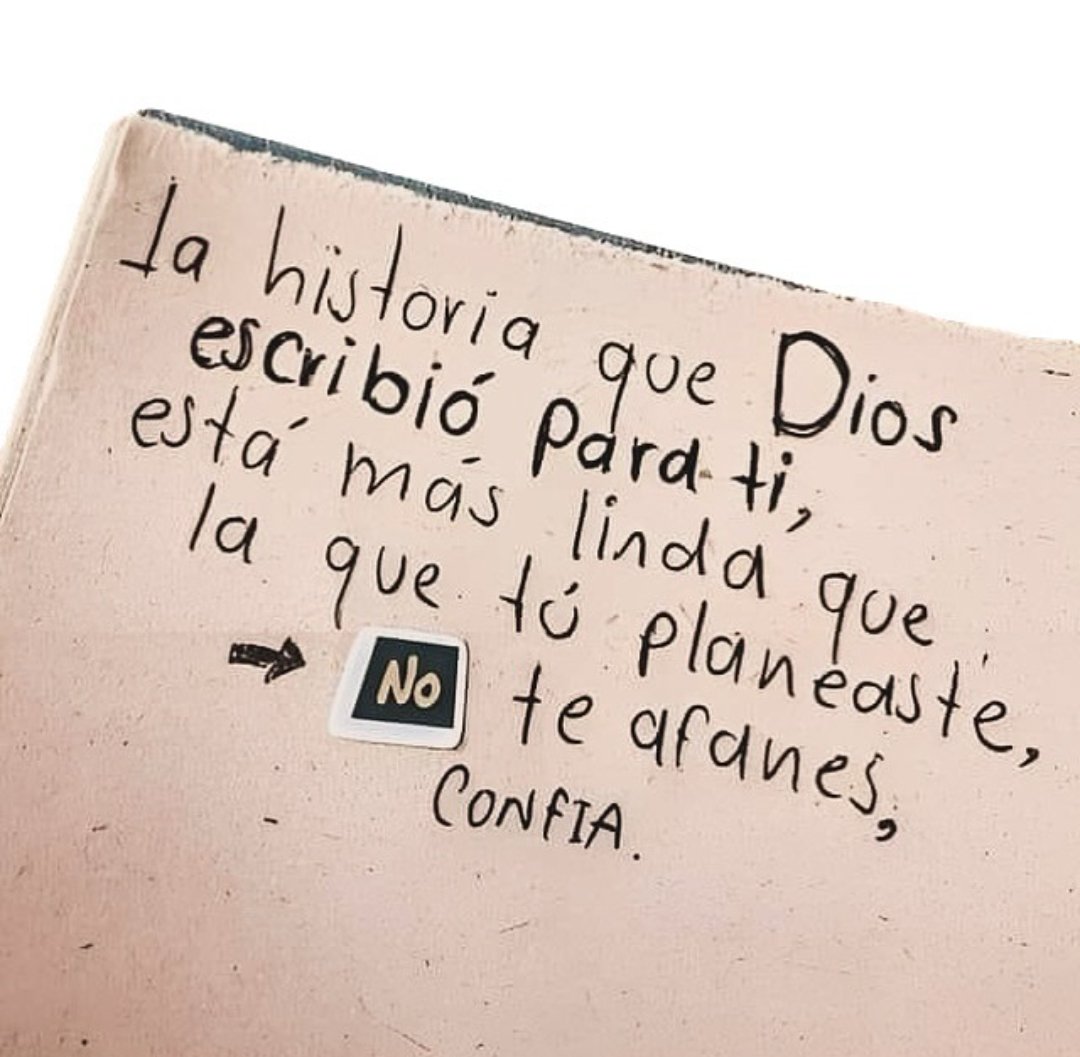 la historia que Dios
escribió para ti,
está más linda que
la que tú planeaste,
No te afanes,
CONFIA.